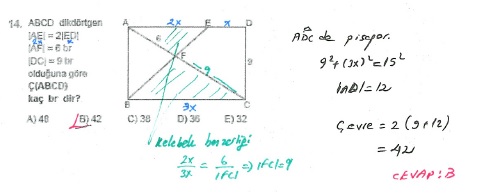 14. ABCD dikdörtgen
|AE| = 2|ED|
2x x
|AF| = 6 br
|DC| = 9 br
olduğuna göre
Ç(ABCD)
kaç br dir?
A) 48 B) 42 C) 38 D) 36 E) 32
A 2x E x D
6
F
9
9
B 3x C
Kelebek benzerliği
2x/3x = 6/|FC| => |FC| = 9
ADC de pisagor.
9² + (3x)² = 15²
|AD| = 12
Çevre = 2(9+12)
= 42
CEVAP: B